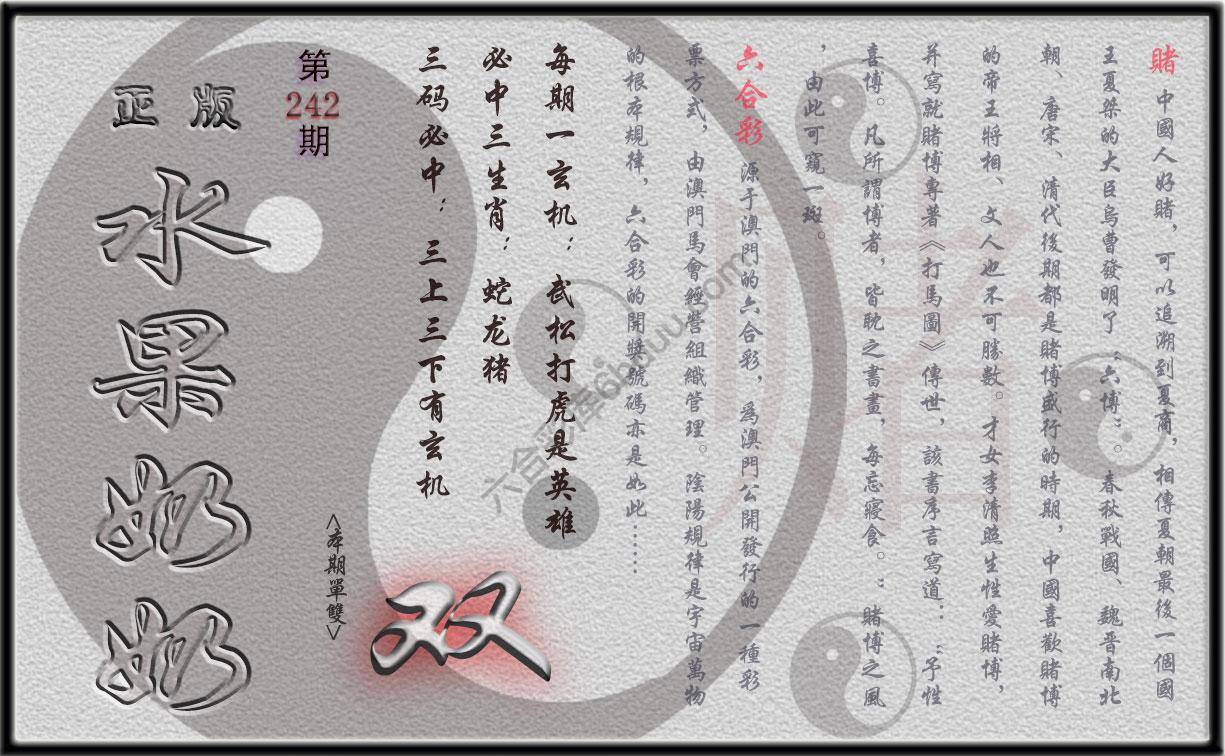 賭 中國人好賭，可以追溯到夏商，相傳夏朝最後一個國
王夏桀的大臣烏曹發明了“六博”。春秋戰國、魏晉南北
朝、唐宋、清代後期都是賭博盛行的時期，中國喜歡賭博
的帝王將相、文人也不可勝數。才女李清照生性愛賭博，
并寫就賭博專著《打馬圖》傳世，該書序言寫道：“予性
喜博。凡所謂博者，皆耽之晝畫，每忘寢食。”賭博之風
，由此可窺一斑。
六合彩 源于澳門的六合彩，爲澳門公開發行的一種彩
票方式，由澳門馬會經營組織管理。陰陽規律是宇宙萬物
的根本規律，六合彩的開獎號碼亦是如此······
每期一玄机：武松打虎是英雄
必中三生肖：蛇龙猪
三码必中：三上三下有玄机
<本期單雙>
双
第
242
期
正版
水果奶奶
六合彩库6hduu.com
赌